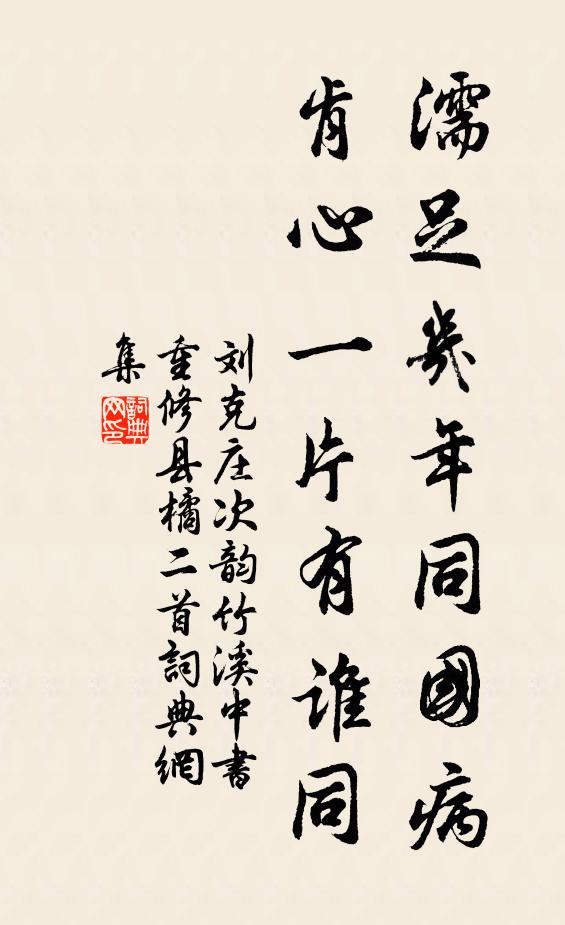 濡足幾年同國病
肯心一片有誰同
刘克庄次韵竹溪中書
重修县橘二首詞典網
集
詞典网印